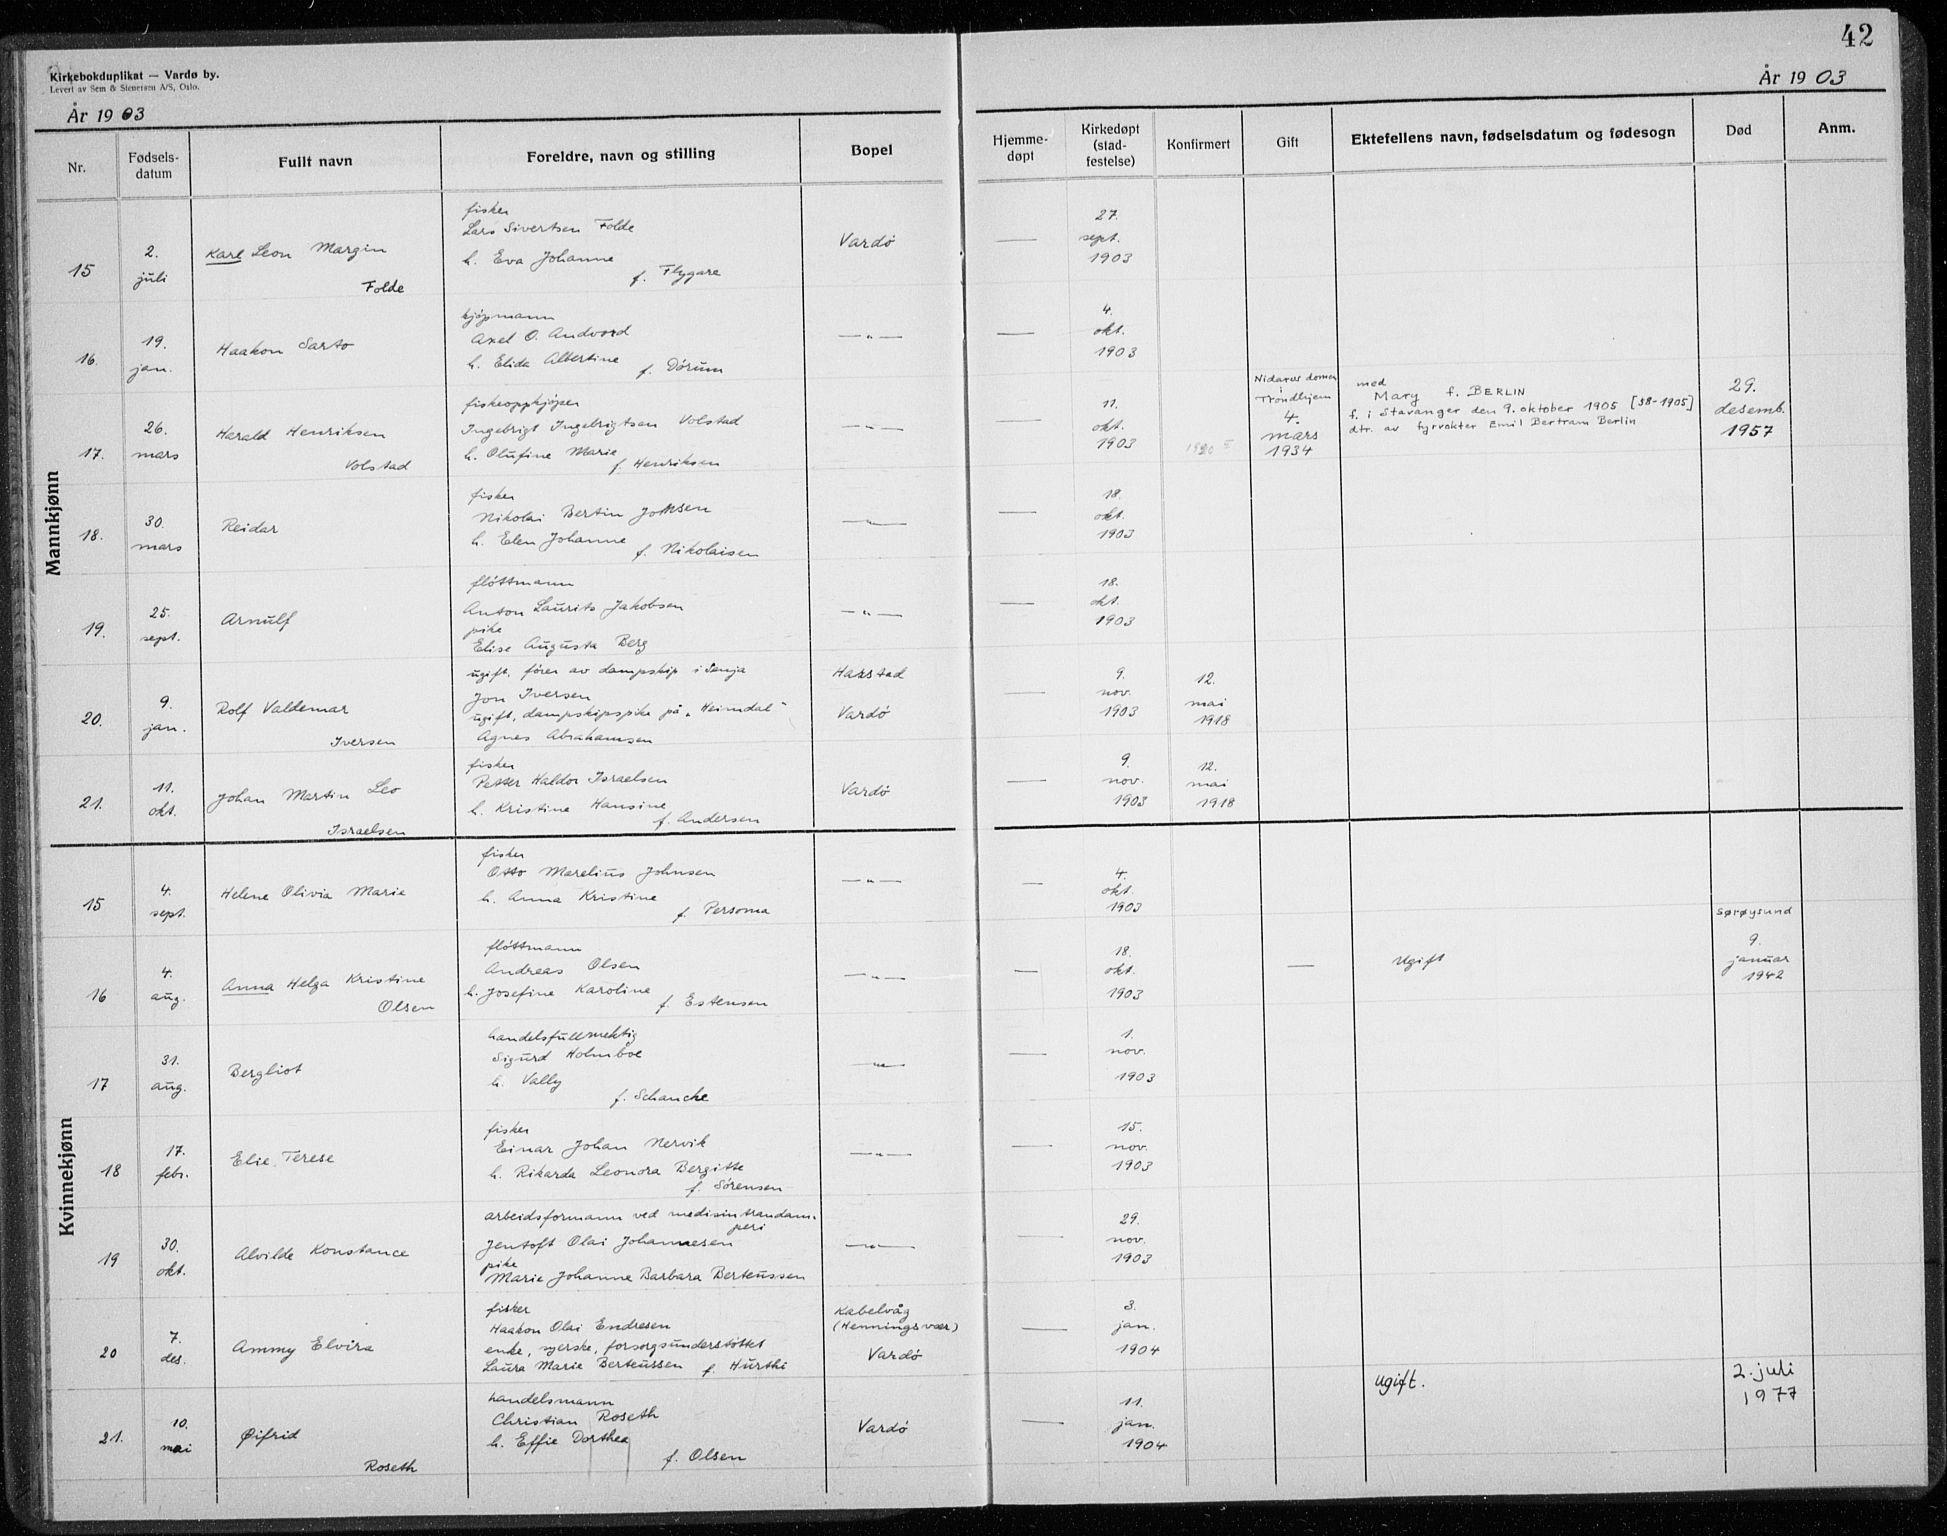 42
Kirkebokduplikat — Vardø by.
Levert av Sem & Stenersen A/S, Oslo.
År 1903
År 1903
Nr.
Fødsels-
datum
Fullt navn
Foreldre, navn og stilling
Bopel
Hjemme-
døpt
Kirkedøpt
(stad-
festelse)
Konfirmert
Gift
Ektefellens navn, fødselsdatum og fødesogn
Død
Anm.
Mannkjønn
15
2.
juli
Karl Leon Margin
Folde
fisker
Lars Sivertsen Folde
h. Eva Johanne
f. Flygare
Vardö
—
27.
sept.
1903
16.
19.
jan.
Haakon Sarto
kjöpmann
Axel O. Andvord
h. Elida Albertine
f. Dörum
—„—
—
4.
okt.
1903
17.
26.
mars
Harald Henriksen
Volstad
fiskeoppkjöper
Ingebrigt Ingebrigtsen Volstad
h. Olufine Marie
f. Henriksen
—„—
—
11.
okt.
1903
Nidaros domen
Trondhjem
4.
mars
1934
med
Mary f. BERLIN
f. i Stavanger den 9. oktober 1905 [38-1905]
dtr. av fyrvokter Emil Bertram Berlin
29.
desemb.
1957
18.
30.
mars
Reidar
fisker
Nikolai Bertin
h. Elen Johanne
f. Nikolaisen
—„—
—
18.
okt.
1903
19.
25.
sept.
Arnulf
flöttmann
Anton Laurits Jakobsen
pike
Elise Augusta Berg
—„—
—
18.
okt.
1903
20.
9.
jan.
Rolf Valdemar
Iversen
ugift, förer av dampskip i Senja
Jon Iversen
ugift, dampskipspike på „Heimdal"
Agnes Abrahamsen
Harstad
Vardö
—
9.
nov.
1903
12.
mai
1918
21.
11.
okt.
Johan Martin Leo
Israelsen
fisker
Petter Haldor Israelsen
h. Kristine Hansine
f. Andersen
Vardö
—
9.
nov.
1903
12.
mai
1918
Kvinnekjønn
15
4.
sept.
Helene Olivia Marie
fisker
Otto Marelius Johnsen
h. Anna Kristine
f. Persoma
—„—
—
4.
okt.
1903
16
4.
aug.
Anna Helga Kristine
Olsen
flöttmann
Andreas Olsen
h. Josefine Karoline
f. Estensen
—„—
—
18.
okt.
1903
—
Ugift
Sørøysund
9.
januar
1942
17
31.
aug.
Bergliot
handelsfullmektig
Sigurd Holmboe
h. Vally
f. Schancke
—„—
—
1.
nov.
1903
18
17.
febr.
Elie Terese
fisker
Einar Johan Nervik
h. Rikarda Leonora Bergitte
f. Sörensen
—„—
—
15.
nov.
1903
19
30.
okt.
Alvilde Konstance
arbeidsformann ved medisintrandam-
peri
Jentoft Olai Johannesen
pike
Marie Johanne Barbara Berteussen
—„—
—
29.
nov.
1903
20
7.
des.
Ammy Elvira
fisker
Haakon Olai Endresen
enke, syerske, forsorgsunderstöttet
Laura Marie Berteussen f. Hurthi
Kabelvåg
(Henningsvær)
Vardö
—
3.
jan.
1904
21.
10.
mai
Øifrid
Roseth
handelsmann
Christian Roseth
h. Effie Dorthea
f. Olsen
Vardö
—
11.
jan.
1904
ugift.
2. juli
1977